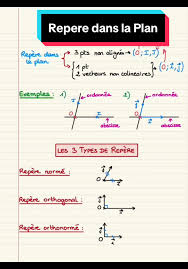 Repere dans la Plan
Repère dans le plan
3 pts non alignés → (O; I; J)
1 pt
2 vecteurs non colinéaires
→ (O; i; j)
Exemples : 1)
ordonnée
O
abscisse
2)
ordonnée
O
abscisse
LES 3 TYPES DE REPÈRE
Repère normé :
Repère orthogonal :
Repère orthonormé :